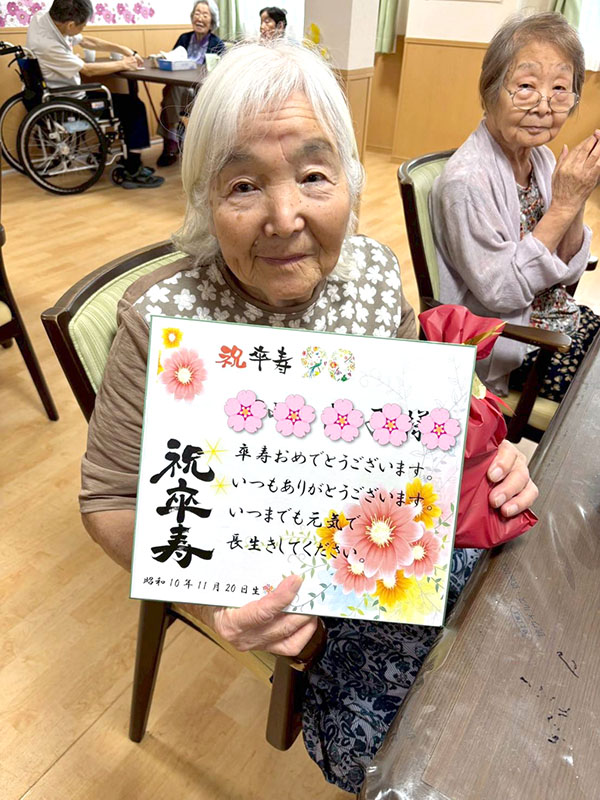 祝 卒寿 90
様
卒寿おめでとうございます。
いつもありがとうございます。
いつまでも元気で
長生きしてください。
祝卒寿
昭和10年11月20日生